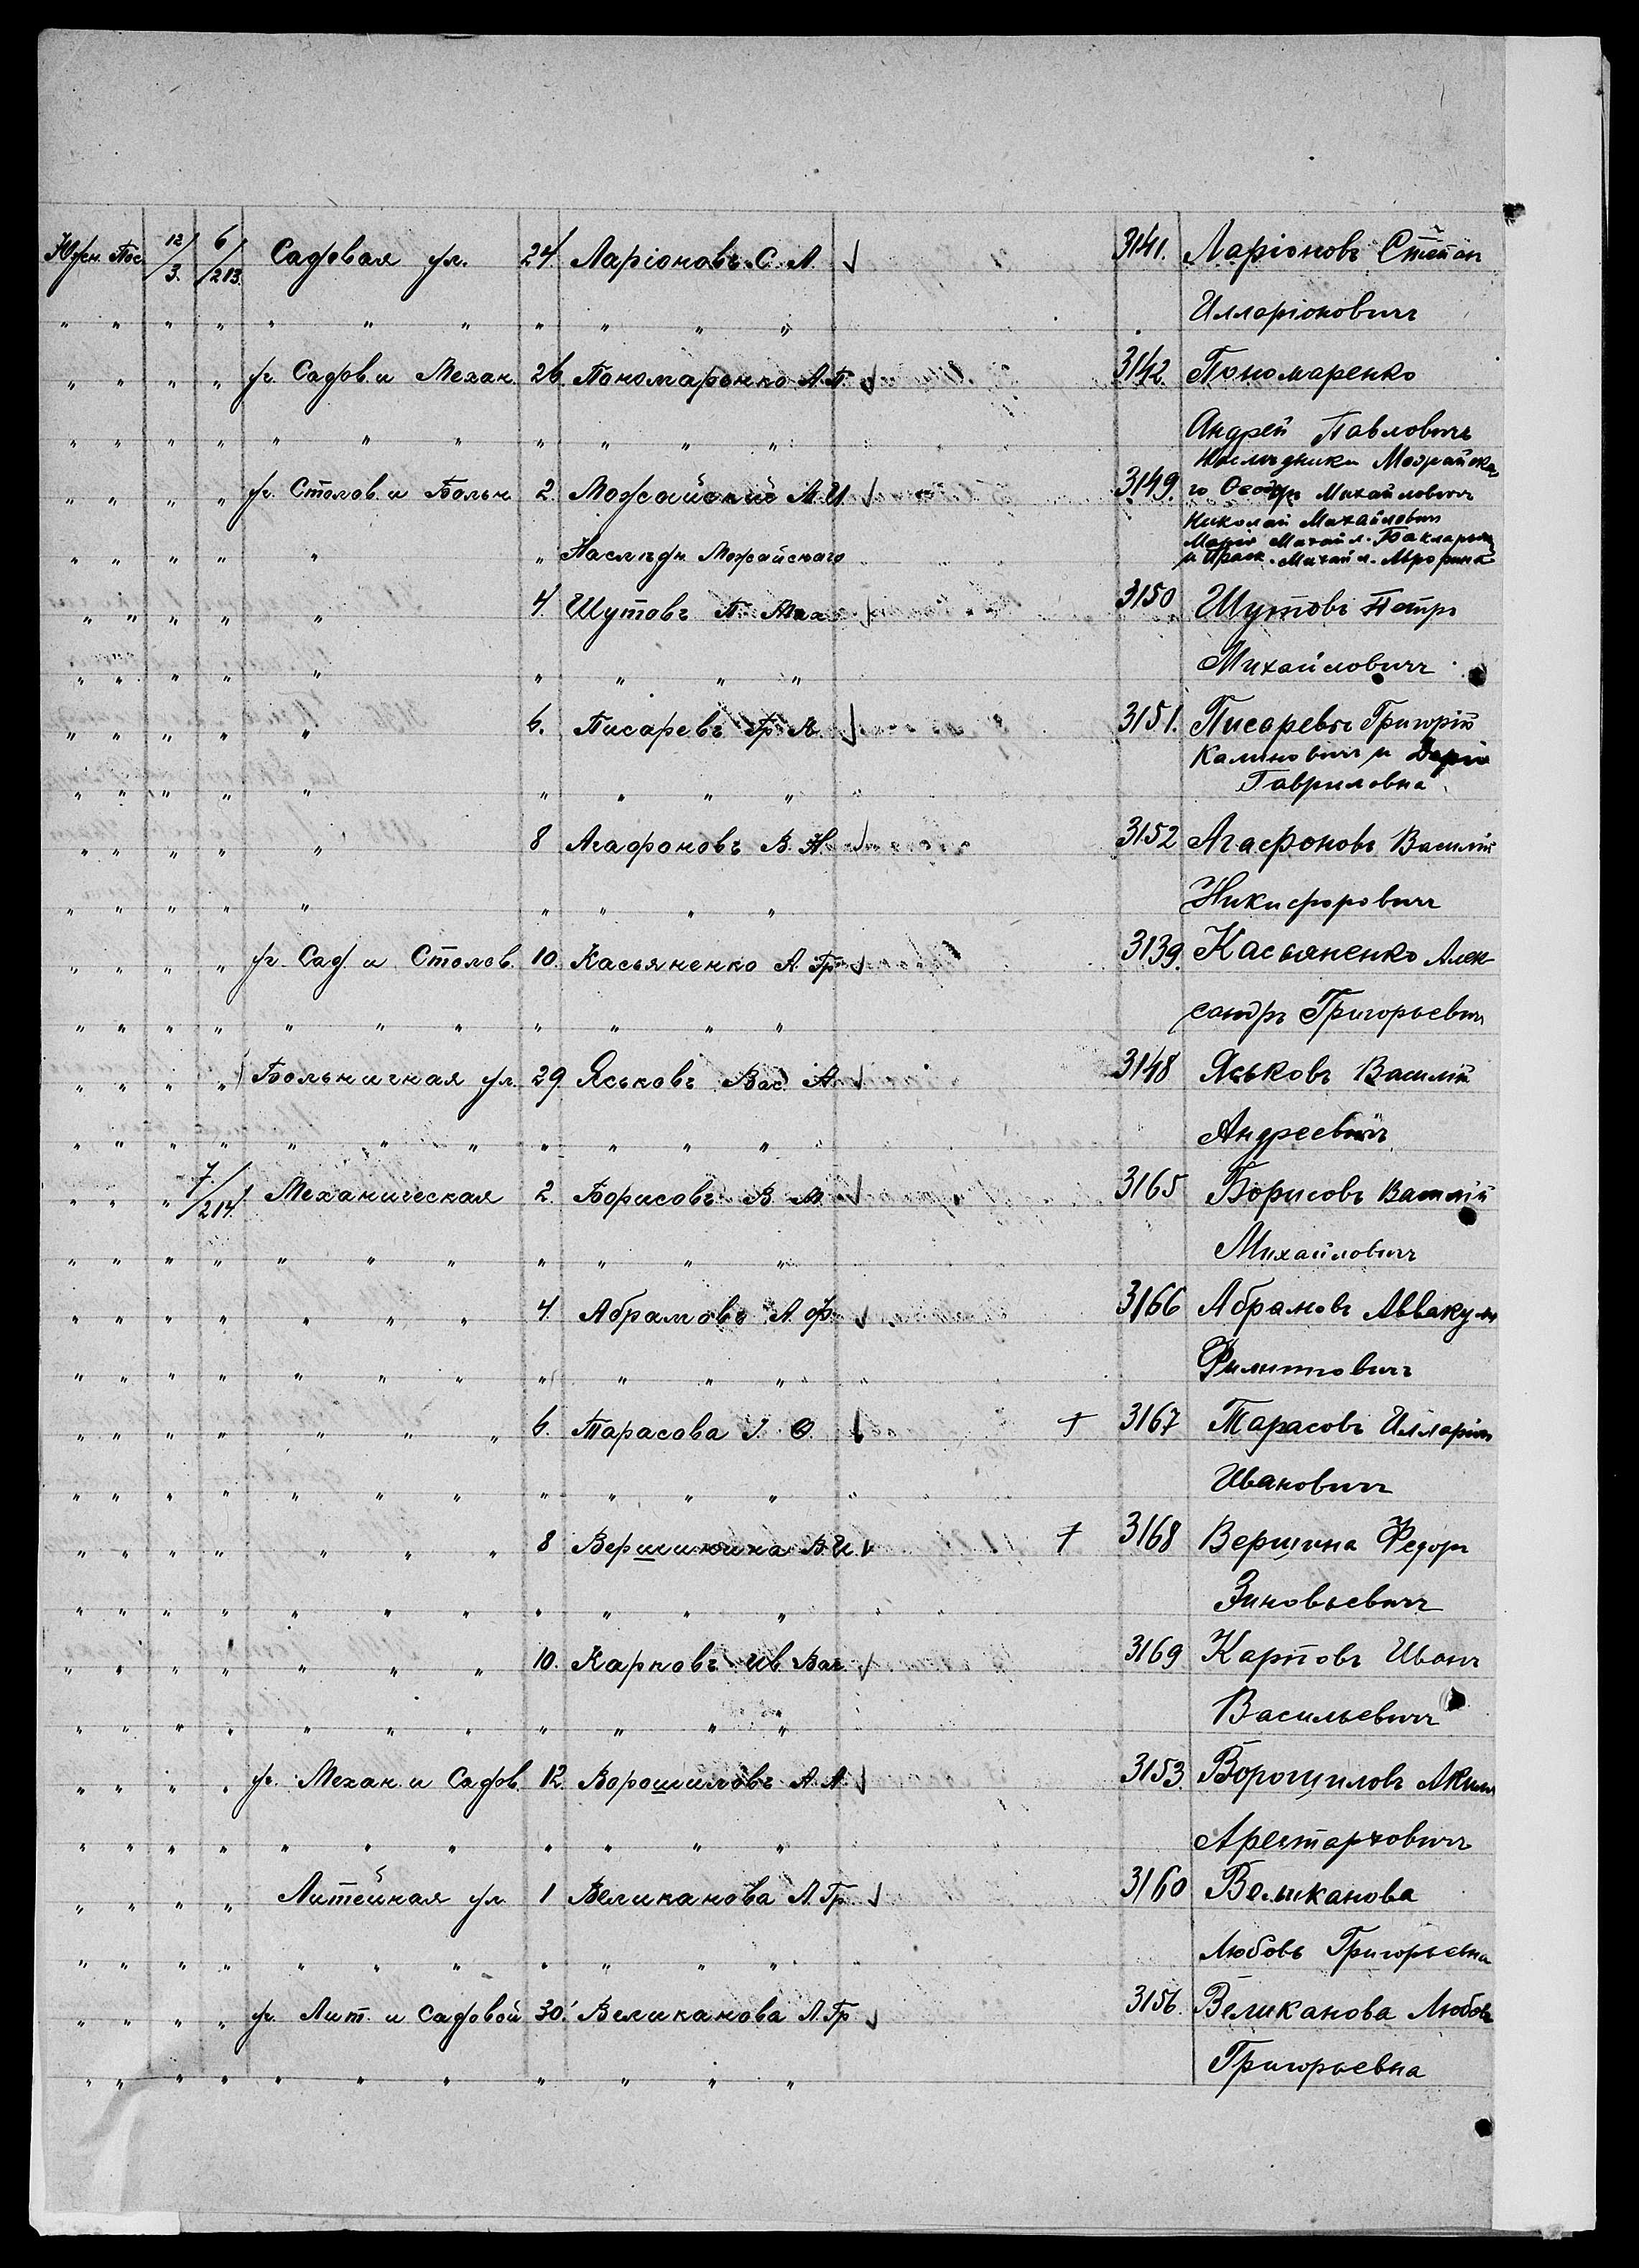 Южн. Пос. 12/3. 6/213. Садовая ул. 24 Ларіоновъ С. Л. √ 3141. Ларіоновъ Степан
" " " " " " " " " " " Илларіоновичъ
" " " " уг. Садов. и Механ. 26 Пономаренко А. П. √ 3142. Пономаренко
" " " " " " " " " " " Андрей Павловичъ
Наслѣдники Можайска
" " " " уг. Столов. и Больн. 2. Можайскій М. И √ 3149. го Ѳеодръ Михайловичъ
Николай Михайлович
" " " " " " Наслѣдн. Можайскаго Марія Михайл.
и Праск. Михайл.
" " " " " 4. Шутовъ П. Мих √ 3150 Шутовъ Петръ
" " " " " " " " " Михайловичъ
" " " " " 6. Писаревъ Гр. √ 3151. Писаревъ Григорій
Калиновичъ и Дарія
" " " " " " " " " Гавриловна
" " " " " 8 Агафоновъ В. Н. √ 3152 Агафоновъ Василій
" " " " " " " " " Никифоровичъ
" " " " уг. Сад. и Столов. 10. Касьяненко А. Гр. √ 3139. Касьяненко Алек-
" " " " " " " " " " " сандръ Григорьевич
" " " " Больничная ул. 29. Яськовъ Вас. А √ 3148 Яськовъ Василій
" " " " " " " " " " " Андреевичъ
" " " 7/214. Механическая 2. Борисовъ В. М. √ 3165 Борисовъ Василій
" " " " " " " " " " " Михайловичъ
" " " " " " " 4. Абрамовъ А. Ф. √ 3166 Абрамовъ Аввакумъ
" " " " " " " " " " " Филиповичъ
" " " " " " " 6. Тарасова І. Ѳ. √ + 3167 Тарасовъ Илларіон
" " " " " " " " " " " Ивановичъ
" " " " " " " 8 Вершинина В. И. √ + 3168 Вершина Федоръ
" " " " " " " " " " " Зиновьевичъ
" " " " " " " 10. Карповъ Ив. Вас. √ 3169 Карповъ Иванъ
" " " " " " " " " " " Васильевичъ
" " " " уг. Механ. и Садов. 12. Ворошиловъ А. А √ 3153. Ворошиловъ Аким
" " " " " " " " " " " Арестарховичъ
" " " " Литейная ул 1 Великанова Л. Гр. √ 3160 Великанова
" " " " " " " " " " " Любовь Григорьевна
" " " " уг. Лит. и Садовой 30. Великанова Л. Гр √ 3156. Великанова Любовь
" " " " " " " " " " " Григорьевна